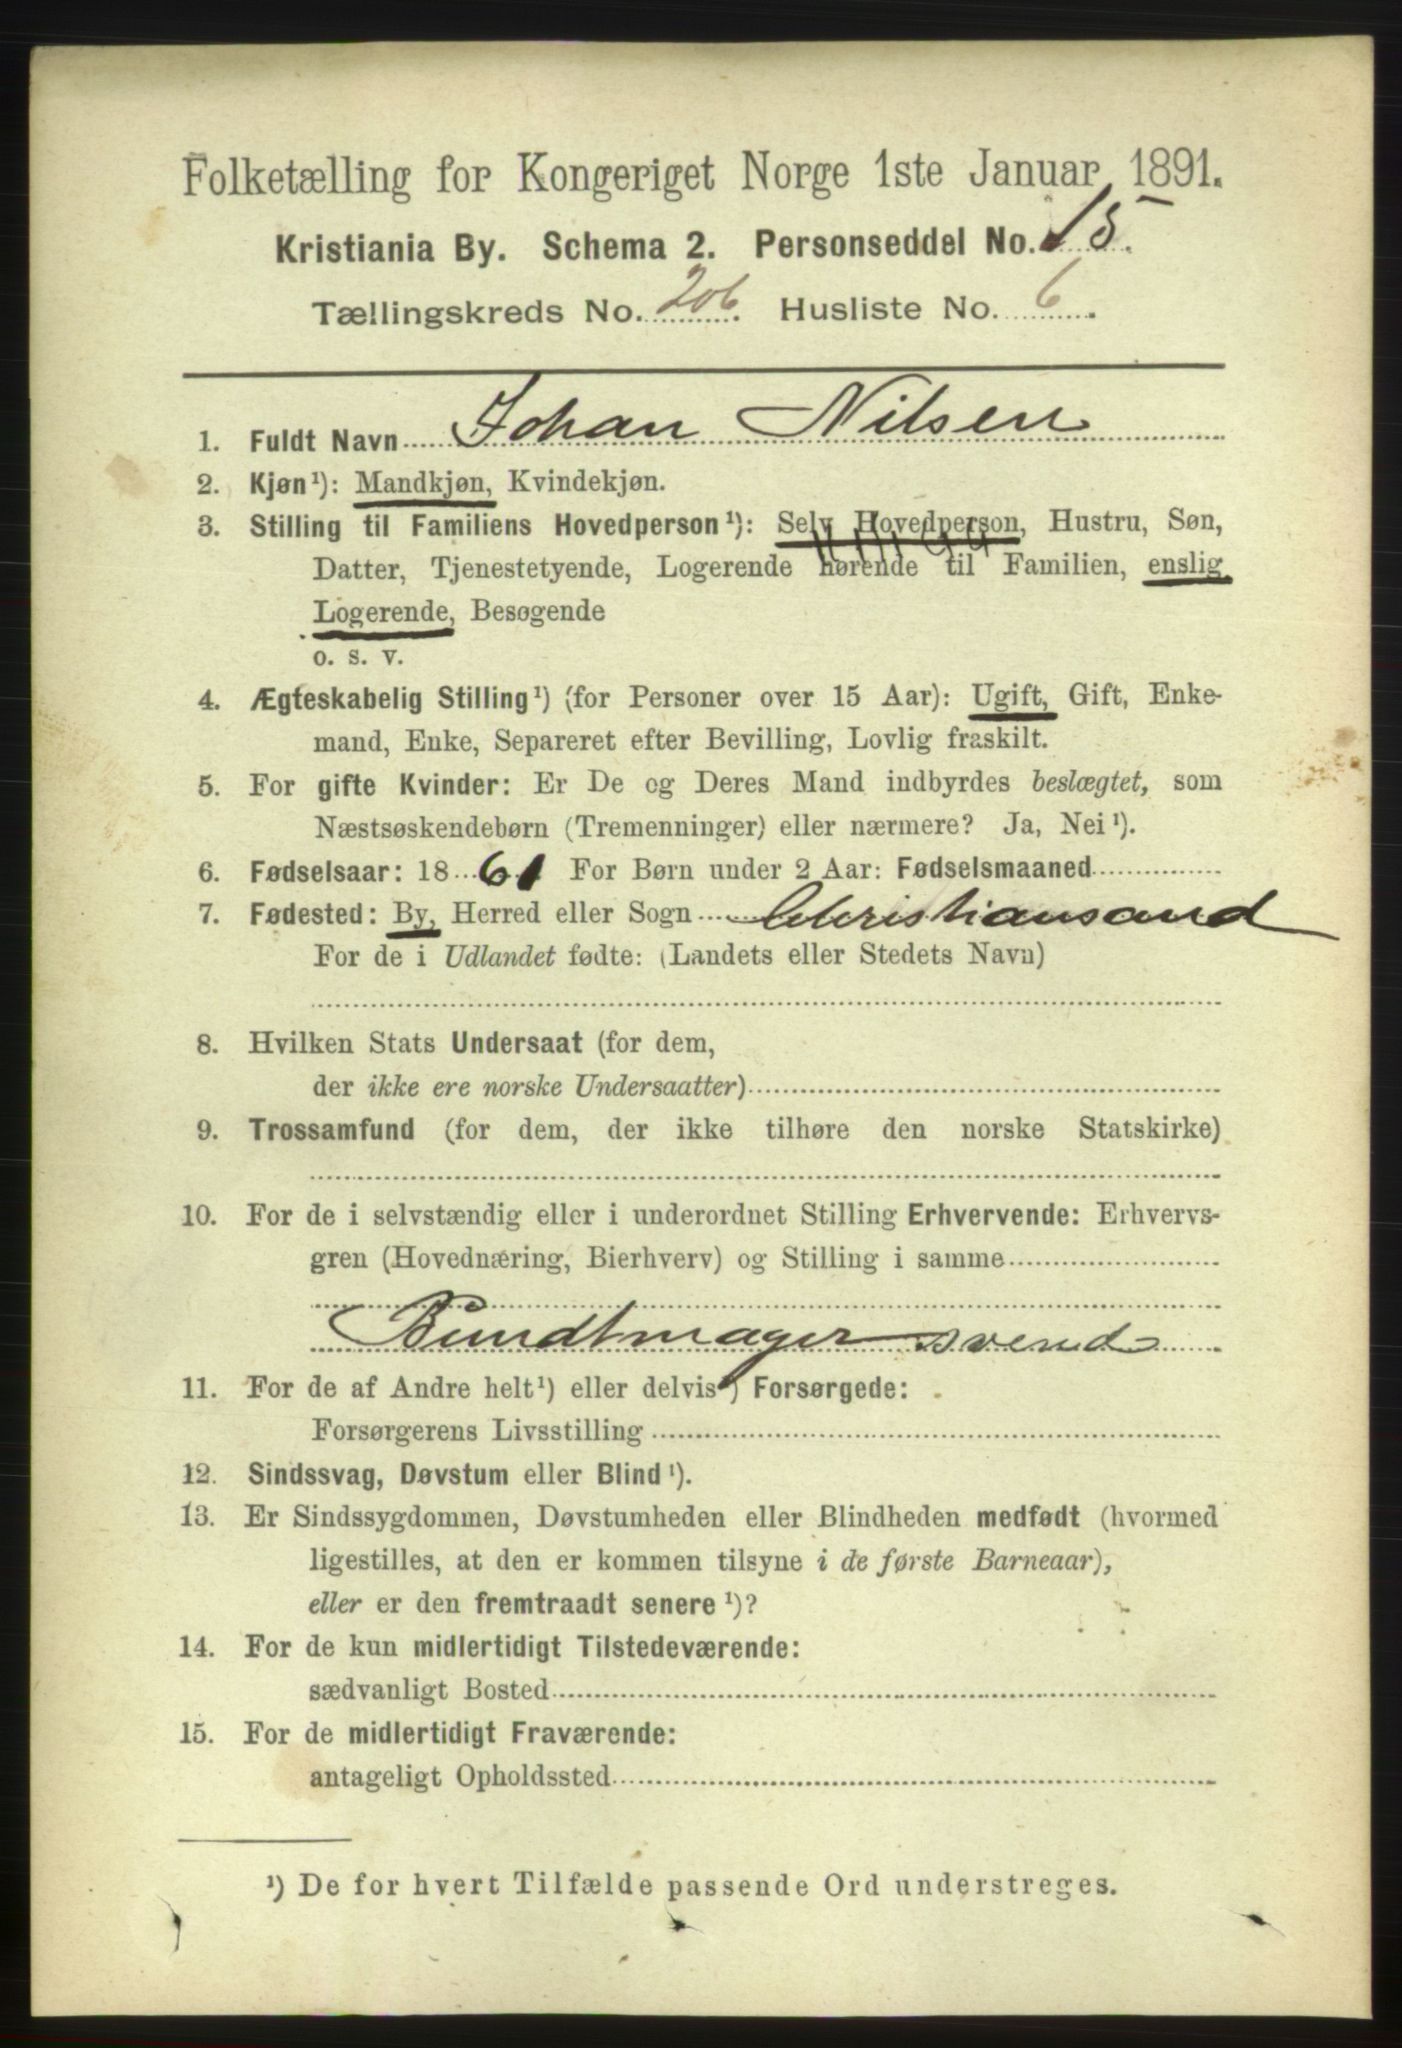 Folketælling for Kongeriget Norge 1ste Januar 1891.
Kristiania By. Schema 2. Personseddel No. 15.
Tællingskreds No. 206. Husliste No. 6.
1. Fuldt Navn Johan Nilsen
2. Kjøn¹): Mandkjøn, Kvindekjøn.
3. Stilling til Familiens Hovedperson¹): Selv Hovedperson, Hustru, Søn,
Datter, Tjenestetyende, Logerende hørende til Familien, enslig
Logerende, Besøgende
o. s. v.
4. Ægteskabelig Stilling¹) (for Personer over 15 Aar): Ugift, Gift, Enke-
mand, Enke, Separeret efter Bevilling, Lovlig fraskilt.
5. For gifte Kvinder: Er De og Deres Mand indbyrdes beslægtet, som
Næstsøskendebørn (Tremenninger) eller nærmere? Ja, Nei¹).
6. Fødselsaar: 1861 For Børn under 2 Aar: Fødselsmaaned
7. Fødested: By, Herred eller Sogn Christiansand
For de i Udlandet fødte: (Landets eller Stedets Navn)
8. Hvilken Stats Undersaat (for dem,
der ikke ere norske Undersaatter)
9. Trossamfund (for dem, der ikke tilhøre den norske Statskirke)
10. For de i selvstændig eller i underordnet Stilling Erhvervende: Erhvervs-
gren (Hovednæring, Bierhverv) og Stilling i samme
Bundtmager svend
11. For de af Andre helt¹) eller delvis¹) Forsørgede:
Forsørgerens Livsstilling
12. Sindssvag, Døvstum eller Blind¹).
13. Er Sindssygdommen, Døvstumheden eller Blindheden medfødt (hvormed
ligestilles, at den er kommen tilsyne i de første Barneaar),
eller er den fremtraadt senere¹)?
14. For de kun midlertidigt Tilstedeværende:
sædvanligt Bosted
15. For de midlertidigt Fraværende:
antageligt Opholdssted
¹) De for hvert Tilfælde passende Ord understreges.